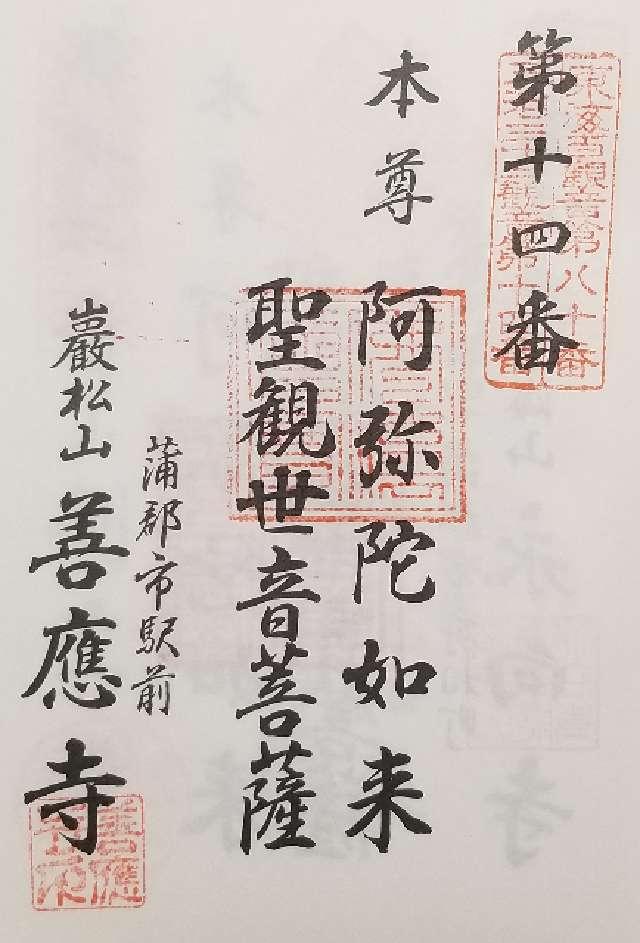 第十四番
東海百観音第八十番
本尊
阿弥陀如来
聖観世音菩薩
蒲郡市駅前
巖松山 善應寺
善應